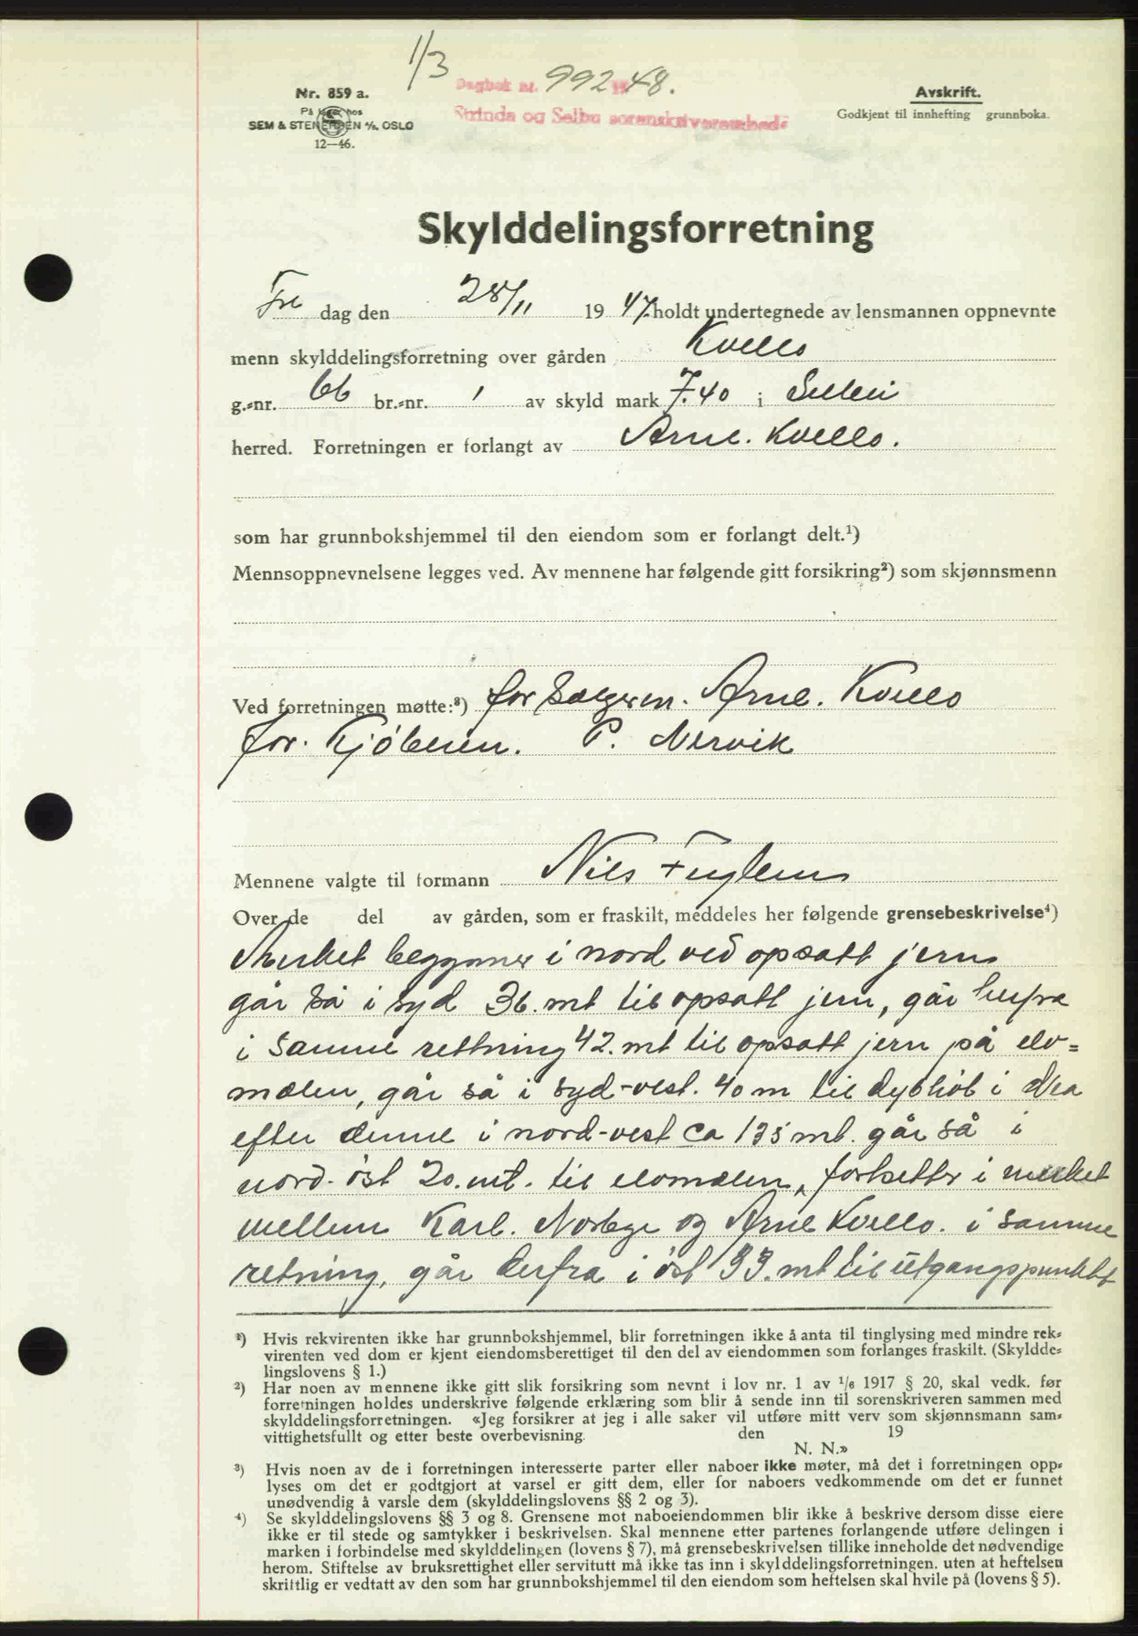 1/3
Dagbok nr. 992 1948.
Strinda og Selbu sorenskriverembede
Nr. 859 a.
På lager hos
SEM & STENERSEN A/S. OSLO
12—46.
Avskrift.
Godkjent til innhefting grunnboka.
Skylddelingsforretning
Fre dag den 28/11 19 47. holdt undertegnede av lensmannen oppnevnte
menn skylddelingsforretning over gården Kvello
g.-nr. 66 br.-nr. 1 av skyld mark 7.40 i Selbu
herred. Forretningen er forlangt av Arne. Kvello.
som har grunnbokshjemmel til den eiendom som er forlangt delt.¹)
Mennsoppnevnelsene legges ved. Av mennene har følgende gitt forsikring²) som skjønnsmenn
Ved forretningen møtte:³) for Selgeren. Arne. Kvello
for. Kjöberen. P. Nervik
Mennene valgte til formann Nils Fuglem
Over de del av gården, som er fraskilt, meddeles her følgende grensebeskrivelse⁴)
Merket begynner i nord ved opsatt jern
går så i syd 36. mt til opsatt jern, går herfra
i samme rettning 42. mt til opsatt jern på elv=
mælen, går så i syd-vest. 40 m til dyphøl i Nea
efter denne i nord-vest ca 135 mt. går så i
nord-öst 20. mt. til elvmælen, fortsetter i merket
mellem Karl. Norbye og Arne Kvello. i samme
retning, går derfra i öst 33. mt til utgangspunktet
¹) Hvis rekvirenten ikke har grunnbokshjemmel, blir forretningen ikke å anta til tinglysing med mindre rek-
virenten ved dom er kjent eiendomsberettiget til den del av eiendommen som forlanges fraskilt. (Skyldde-
lingslovens § 1.)
²) Har noen av mennene ikke gitt slik forsikring som nevnt i lov nr. 1 av 1/6 1917 § 20, skal vedk. før
forretningen holdes underskrive følgende erklæring som blir å sende inn til sorenskriveren sammen med
skylddelingsforretningen. «Jeg forsikrer at jeg i alle saker vil utføre mitt verv som skjønnsmann sam-
vittighetsfullt og etter beste overbevisning. den 19
N. N.»
³) Hvis noen av de i forretningen interesserte parter eller naboer ikke møter, må det i forretningen opp-
lyses om det er godtgjort at varsel er gitt dem, eller for naboers vedkommende om det er funnet
unødvendig å varsle dem (skylddelingslovens §§ 2 og 3).
⁴) Se skylddelingslovens §§ 3 og 8. Grensene mot naboeiendommen blir ikke å beskrive dersom disse eiere
ikke er til stede og samtykker i beskrivelsen. Skal mennene etter partenes forlangende utføre delingen i
marken i forbindelse med skylddelingen (lovens § 7), må grensebeskrivelsen tillike inneholde det nødvendige
herom. Stiftelse av bruksrettighet eller servitutt må ikke tas inn i skylddelingsforretningen. uten at heftelsen
skriftlig er vedtatt av den som har grunnbokshjemmel til den eiendom som heftelsen skal hvile på (lovens § 5).